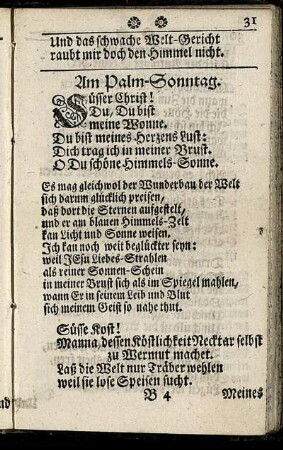 31
Und das schwache Welt-Gericht
raubt mir doch den Himmel nicht.
Am Palm-Sonntag.
Süsser Christ!
Du, Du bist
meine Wonne.
Du bist meines Herzens Lust:
Dich trag ich in meiner Brust.
O Du schöne Himmels-Sonne.
Es mag gleichwol der Wunderbau der Welt
sich darum glücklich preisen,
daß dort die Sternen aufgestellt,
und er am blauen Himmels-Zelt
kan Licht und Sonne weisen.
Ich kan noch weit beglückter seyn:
weil JEsu Liebes-Strahlen
als reiner Sonnen-Schein
in meiner Brust sich als im Spiegel mahlen,
wann Er in seinem Leid und Blut
sich meinem Geist so nahe thut.
Süsse Kost!
Manna, dessen Köstlichkeit Necktar selbst
zu Wermut machet.
Laß die Welt nur Träber wehlen
weil sie lose Speisen sucht.
B 4 Meines